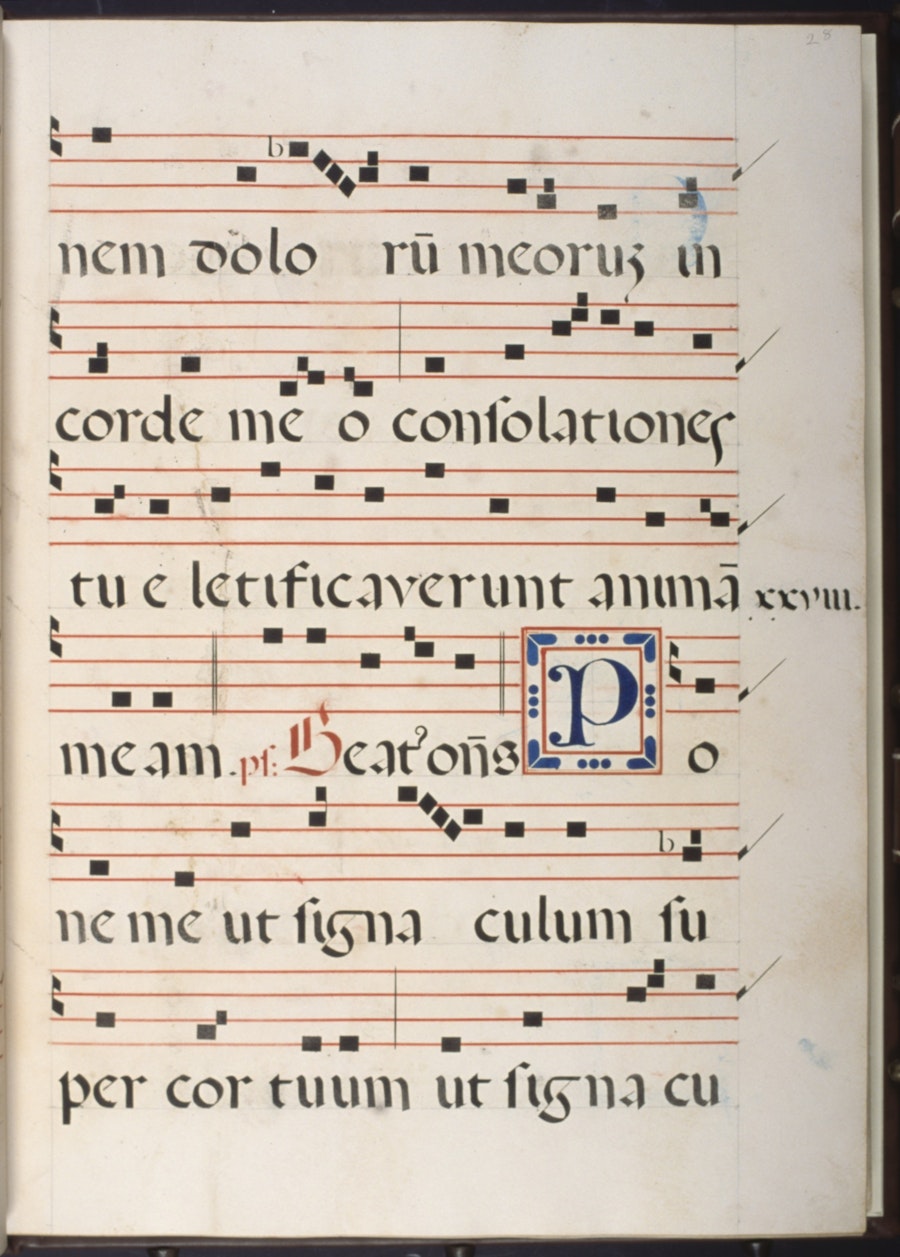 28
b
nem dolo rū meoruꝫ in
corde me o conſolationes
tu e letificaverunt animā xxviii.
me am. pſ: Beatꝰ oñs P o
ne me ut ſigna culum ſu
b
per cor tuum ut ſigna cu